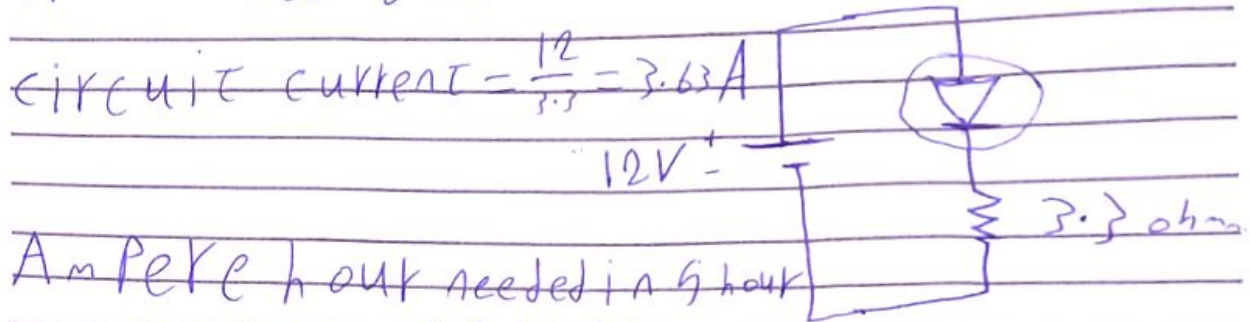 circuit current = 12/3.3 = 3.63A
12V + -
3.3 ohm
Ampere hour needed in 5 hour